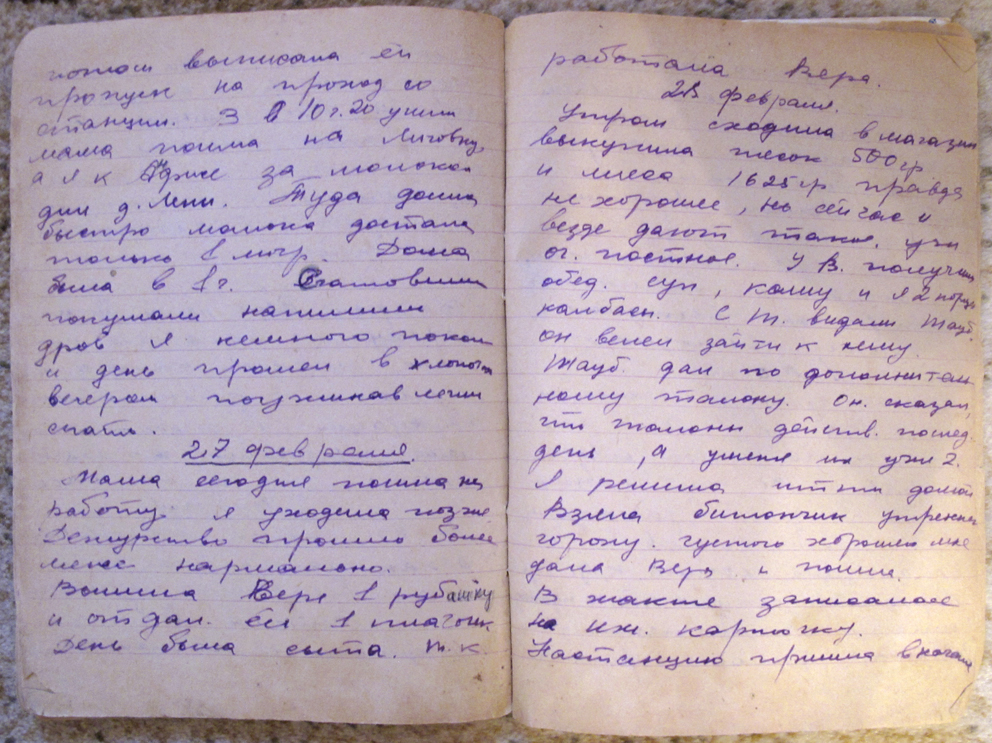 потом выписала ей
пропуск на проход со
станции. З в 10 г. 20 минут
мама пошла на Лиговку,
а я к за молоком
для д. Лени. Туда дошла
быстро молока достала
только 1 литр. Дома
была в 1 г.
покушали напилили
дров я немного
и день прошел в хлопотах
вечером поужинав легли
спать.
27 февраля.
Мама сегодня пошла на
работу. я уходила позже
Дежурство прошло более
менее нормально.
Вере 1 рубашку
и отдал. Ей 1
День была сыта. т. к
работала Вера.
28 февраля.
Утром сходила в магазин
выкупила песок 500 гр
и мяса 1625 гр правда
не хорошее, но сейчас и
везде дают такое.
от. постное. У В. получили
обед. суп, кашу и я 2 порц.
колбасн. С Т. видали Тауб.
он велел зайти к нему.
Тауб. дал по дополнитель
ному талону. Он. сказал,
что талоны действ. послед.
день, а у меня их уже 2.
Я решила итти домой
Взяла битончик утренн
гороху. густого хорошего мне
дала Вера и пошла.
В жакте записалась
на ин. карточку.
На станцию пришла в начале